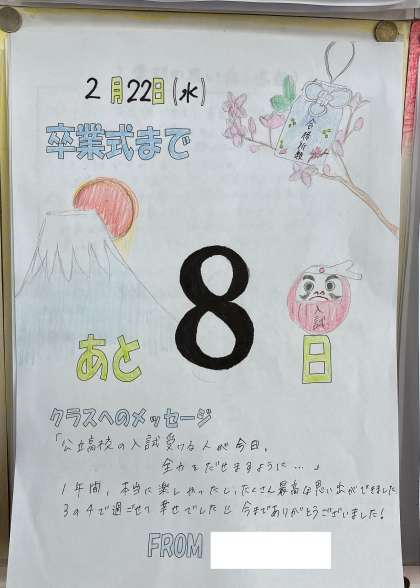 2月22日(水)
卒業式まで
合格祈願
あと8日
入試
クラスへのメッセージ
「公立高校の入試受ける人が今日、
全力をだせますように…」
1年間、本当に楽しかったし、たくさん最高な思い出ができました
3の4で過ごせて幸せでした!! 今までありがとうございました!
FROM